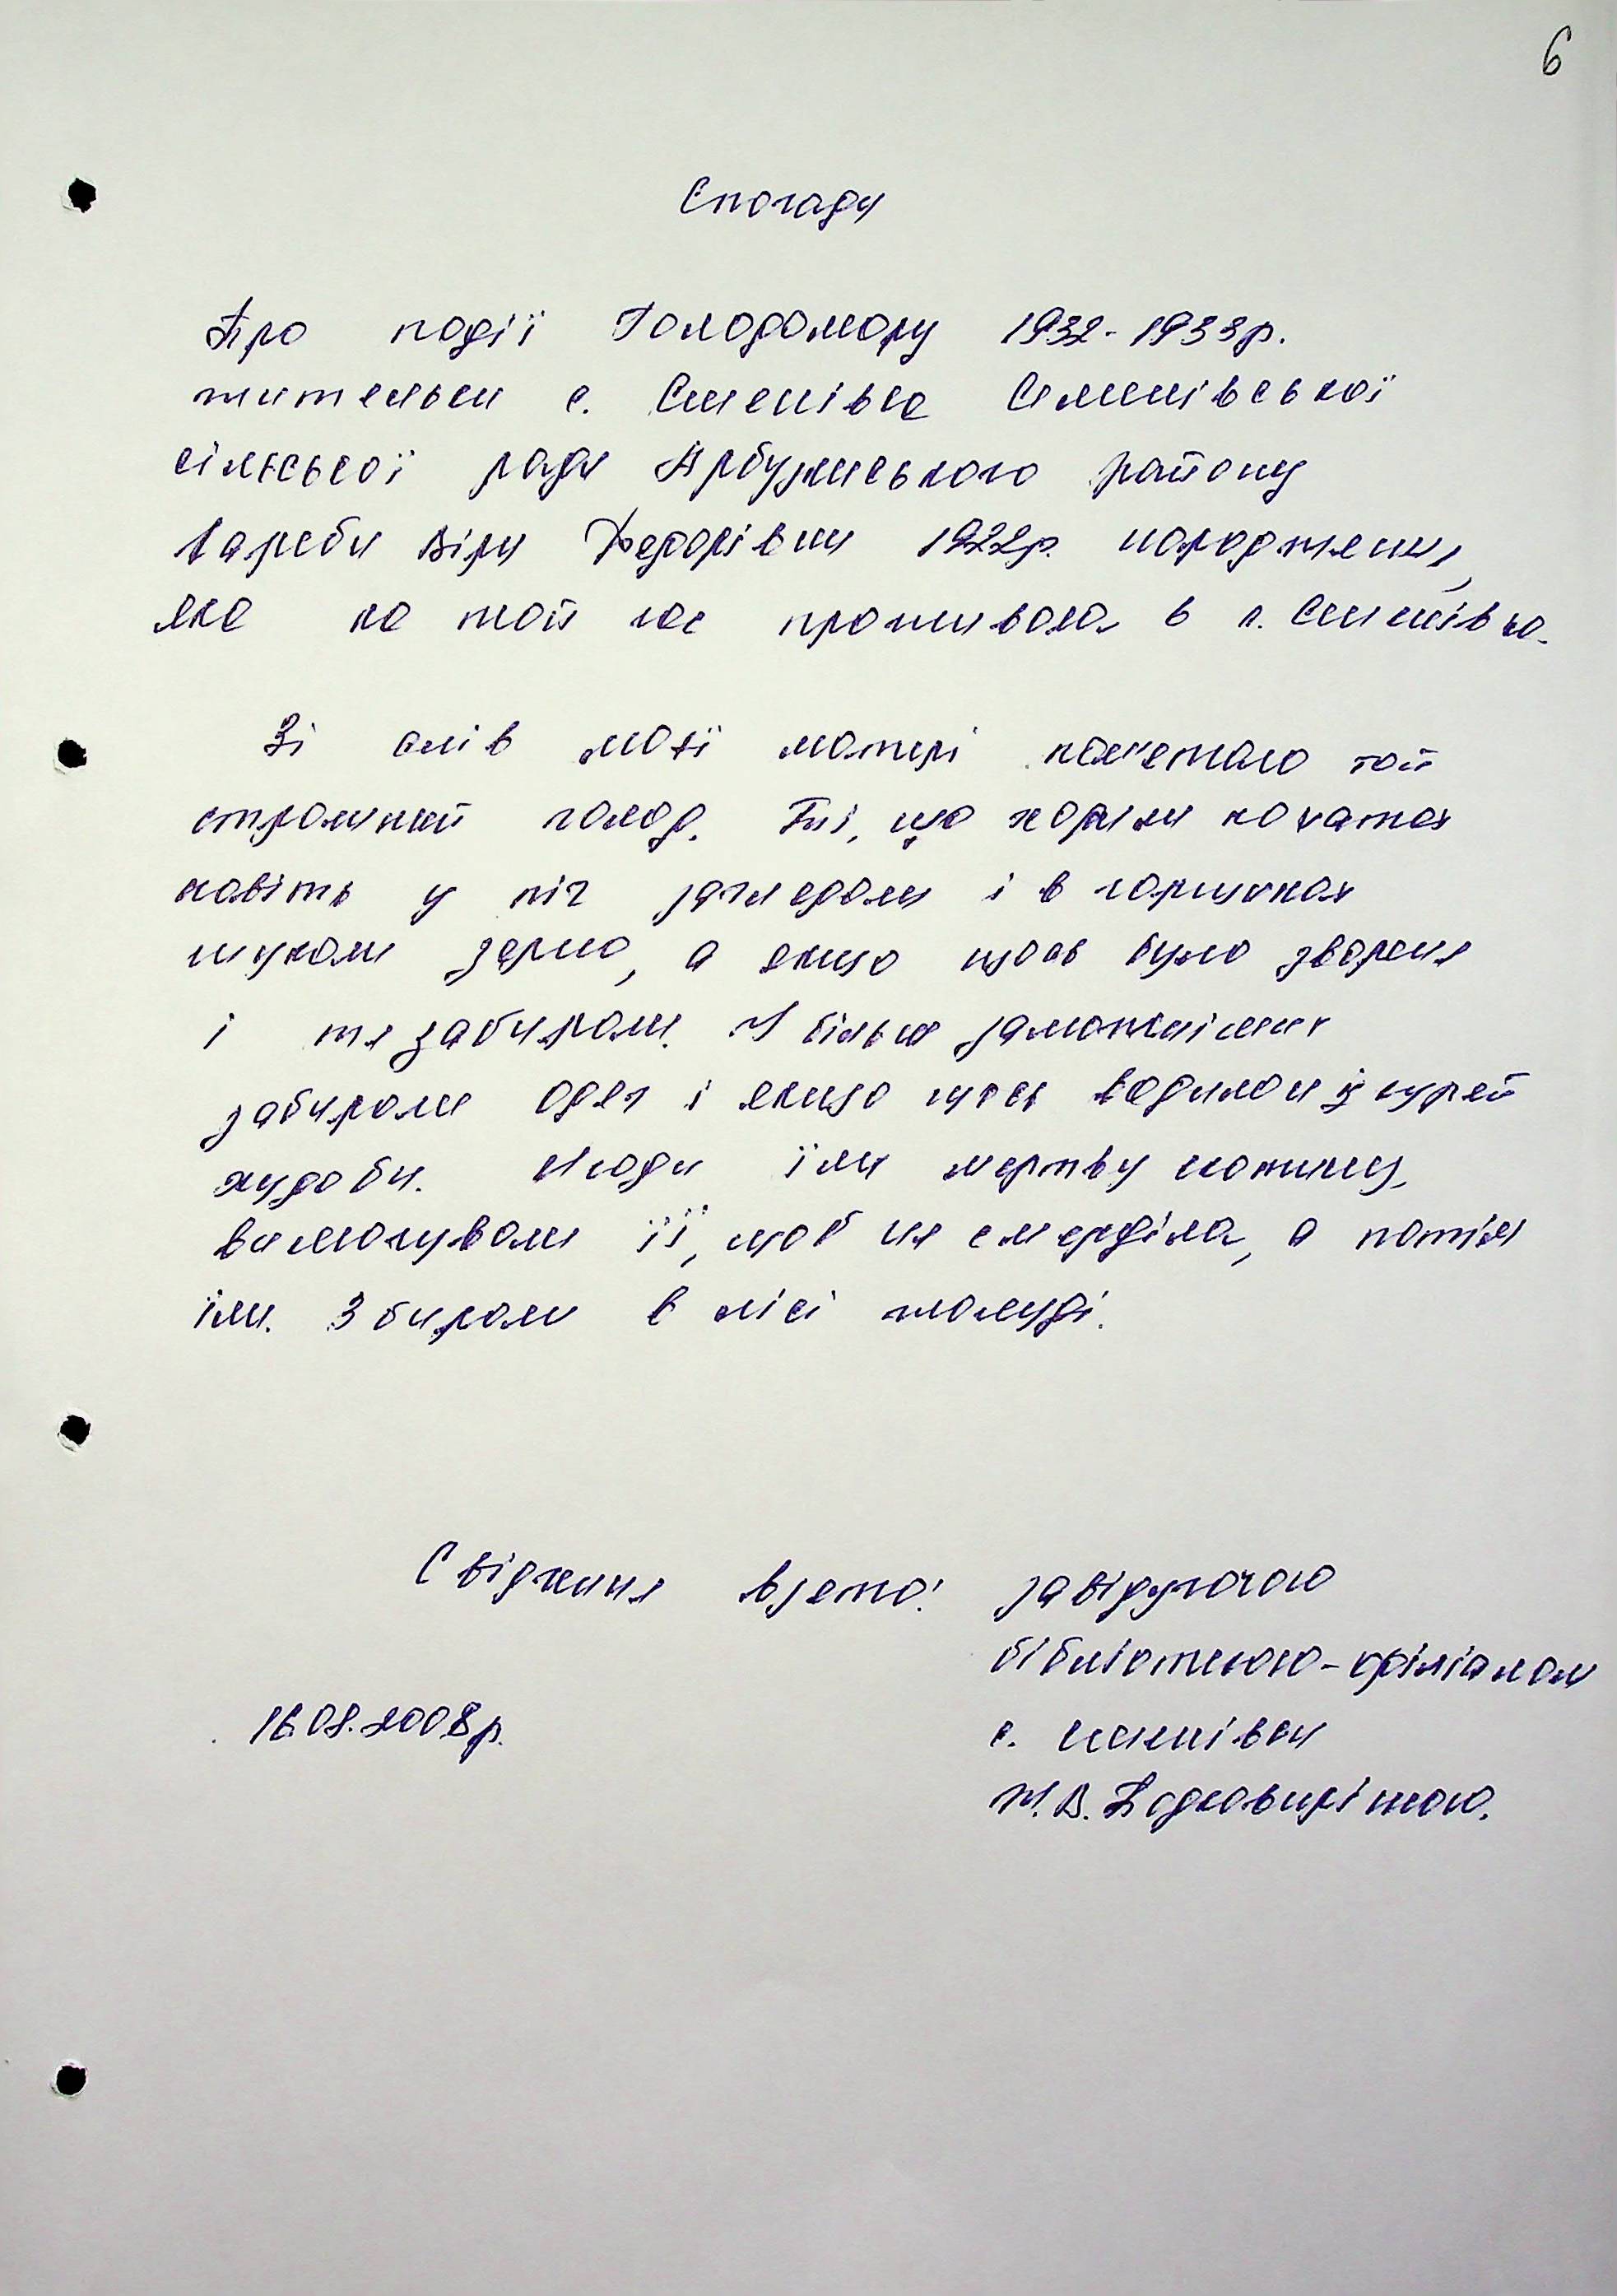 6
Спогади
Про події Голодомору 1932-1933р.
жительки с. Семенівка Семенівської
сільської ради Арбузинського району
Віри Федорівни 1922р. народження,
яка на той час проживала в с. Семенівка.
Зі слів моєї матері пам'ятаю той
страшний голод. Ті, що ходили по хатах
навіть у піч заглядали і в горшках
шукали зерно, а якщо щось було зварене
і те забирали. У більш заможніших
забирали одяг і якщо щось водилося з курей
худоби. Люди їли мертву конину,
вимочували її, щоб не смерділа, а потім
їли. Збирали в лісі жолуді.
Свідчення взято: завідуючою
бібліотекою-філіалом
16.08.2008р.
с. Семенівки